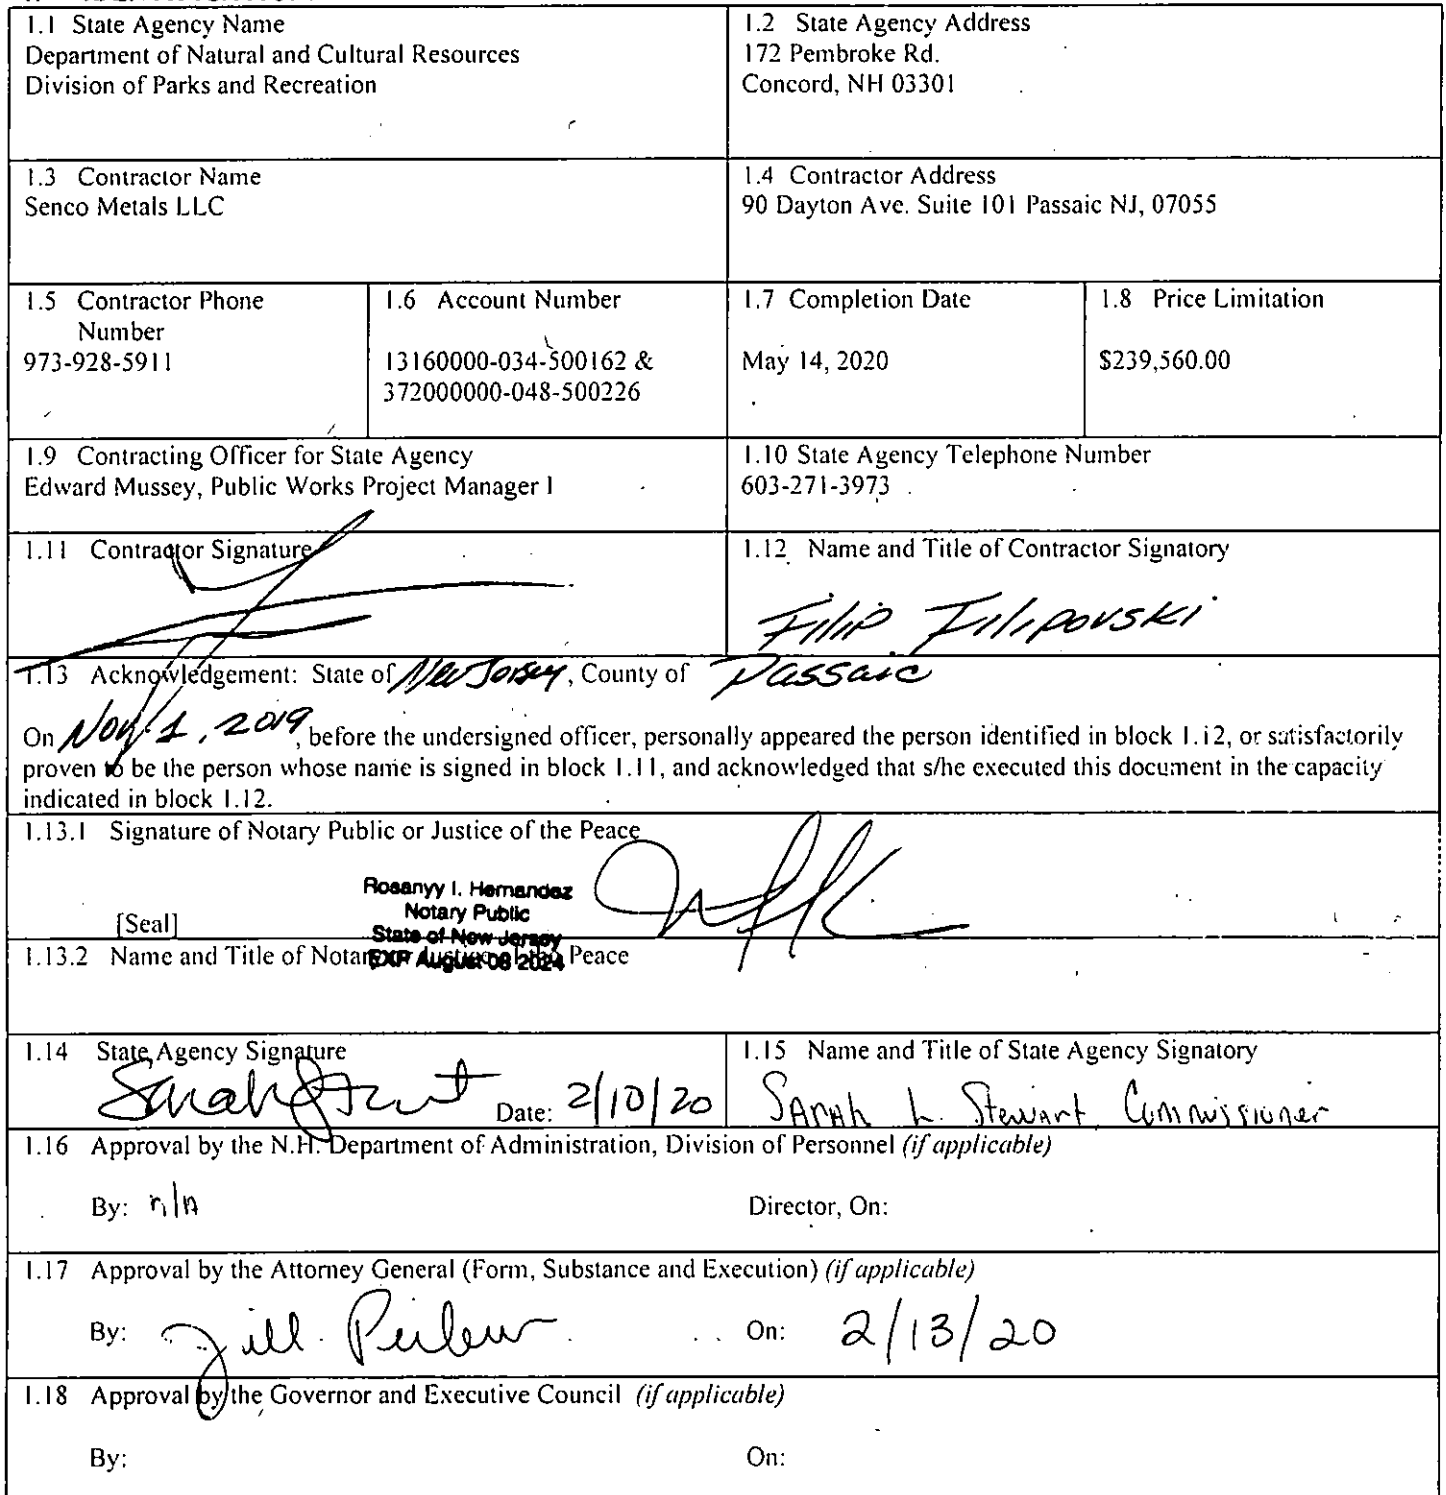 1.1 State Agency Name
Department of Natural and Cultural Resources
Division of Parks and Recreation
1.2 State Agency Address
172 Pembroke Rd.
Concord, NH 03301
1.3 Contractor Name
Senco Metals LLC
1.4 Contractor Address
90 Dayton Ave. Suite 101 Passaic NJ, 07055
1.5 Contractor Phone
Number
973-928-5911
1.6 Account Number
13160000-034-500162 &
372000000-048-500226
1.7 Completion Date
May 14, 2020
1.8 Price Limitation
$239,560.00
1.9 Contracting Officer for State Agency
Edward Mussey, Public Works Project Manager I
1.10 State Agency Telephone Number
603-271-3973
1.11 Contractor Signature
1.12 Name and Title of Contractor Signatory
Filip Filipovski
1.13 Acknowledgement: State of New Jersey, County of Passaic
On Nov 1, 2019, before the undersigned officer, personally appeared the person identified in block 1.12, or satisfactorily
proven to be the person whose name is signed in block 1.11, and acknowledged that s/he executed this document in the capacity
indicated in block 1.12.
1.13.1 Signature of Notary Public or Justice of the Peace
Rosanyy I. Hernandez
Notary Public
[Seal]
State of New Jersey
EXP August 08 2024
1.13.2 Name and Title of Notary or Justice of the Peace
1.14 State Agency Signature
Date: 2/10/20
1.15 Name and Title of State Agency Signatory
Sarah L. Stewart Commissioner
1.16 Approval by the N.H. Department of Administration, Division of Personnel (if applicable)
By: n/a
Director, On:
1.17 Approval by the Attorney General (Form, Substance and Execution) (if applicable)
By: Jill
On: 2/13/20
1.18 Approval by the Governor and Executive Council (if applicable)
By:
On: